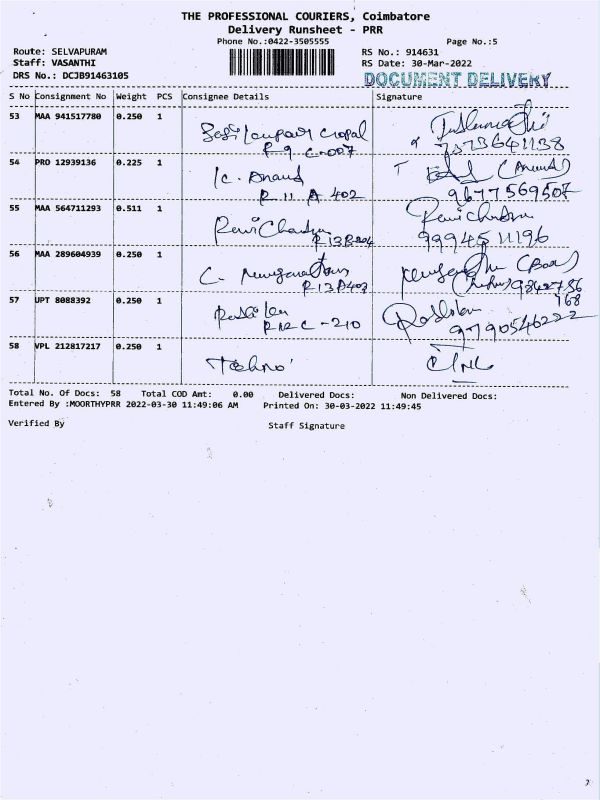 THE PROFESSIONAL COURIERS, Coimbatore
Delivery Runsheet - PRR
Phone No.:0422-3505555 Page No.:5
Route: SELVAPURAM RS No.: 914631
Staff: VASANTHI RS Date: 30-Mar-2022
DRS No.: DCJB91463105 DOCUMENT DELIVERY
S No Consignment No Weight PCS Consignee Details Signature
53 MAA 941517780 0.250 1
R 9 C-007 7373641138
54 PRO 12939136 0.225 1 K. Anand (Anand)
R 11 A 402 9677569507
55 MAA 564711293 0.511 1 Ravi Chandran Ravichandran
R 13 B 204 9994511196
56 MAA 289604939 0.250 1 C.
R 13 A 403
57 UPT 8088392 0.250 1
R 12 C - 210 9790546222
58 VPL 212817217 0.250 1
Total No. Of Docs: 58 Total COD Amt: 0.00 Delivered Docs: Non Delivered Docs:
Entered By :MOORTHYPRR 2022-03-30 11:49:06 AM Printed On: 30-03-2022 11:49:45
Verified By Staff Signature